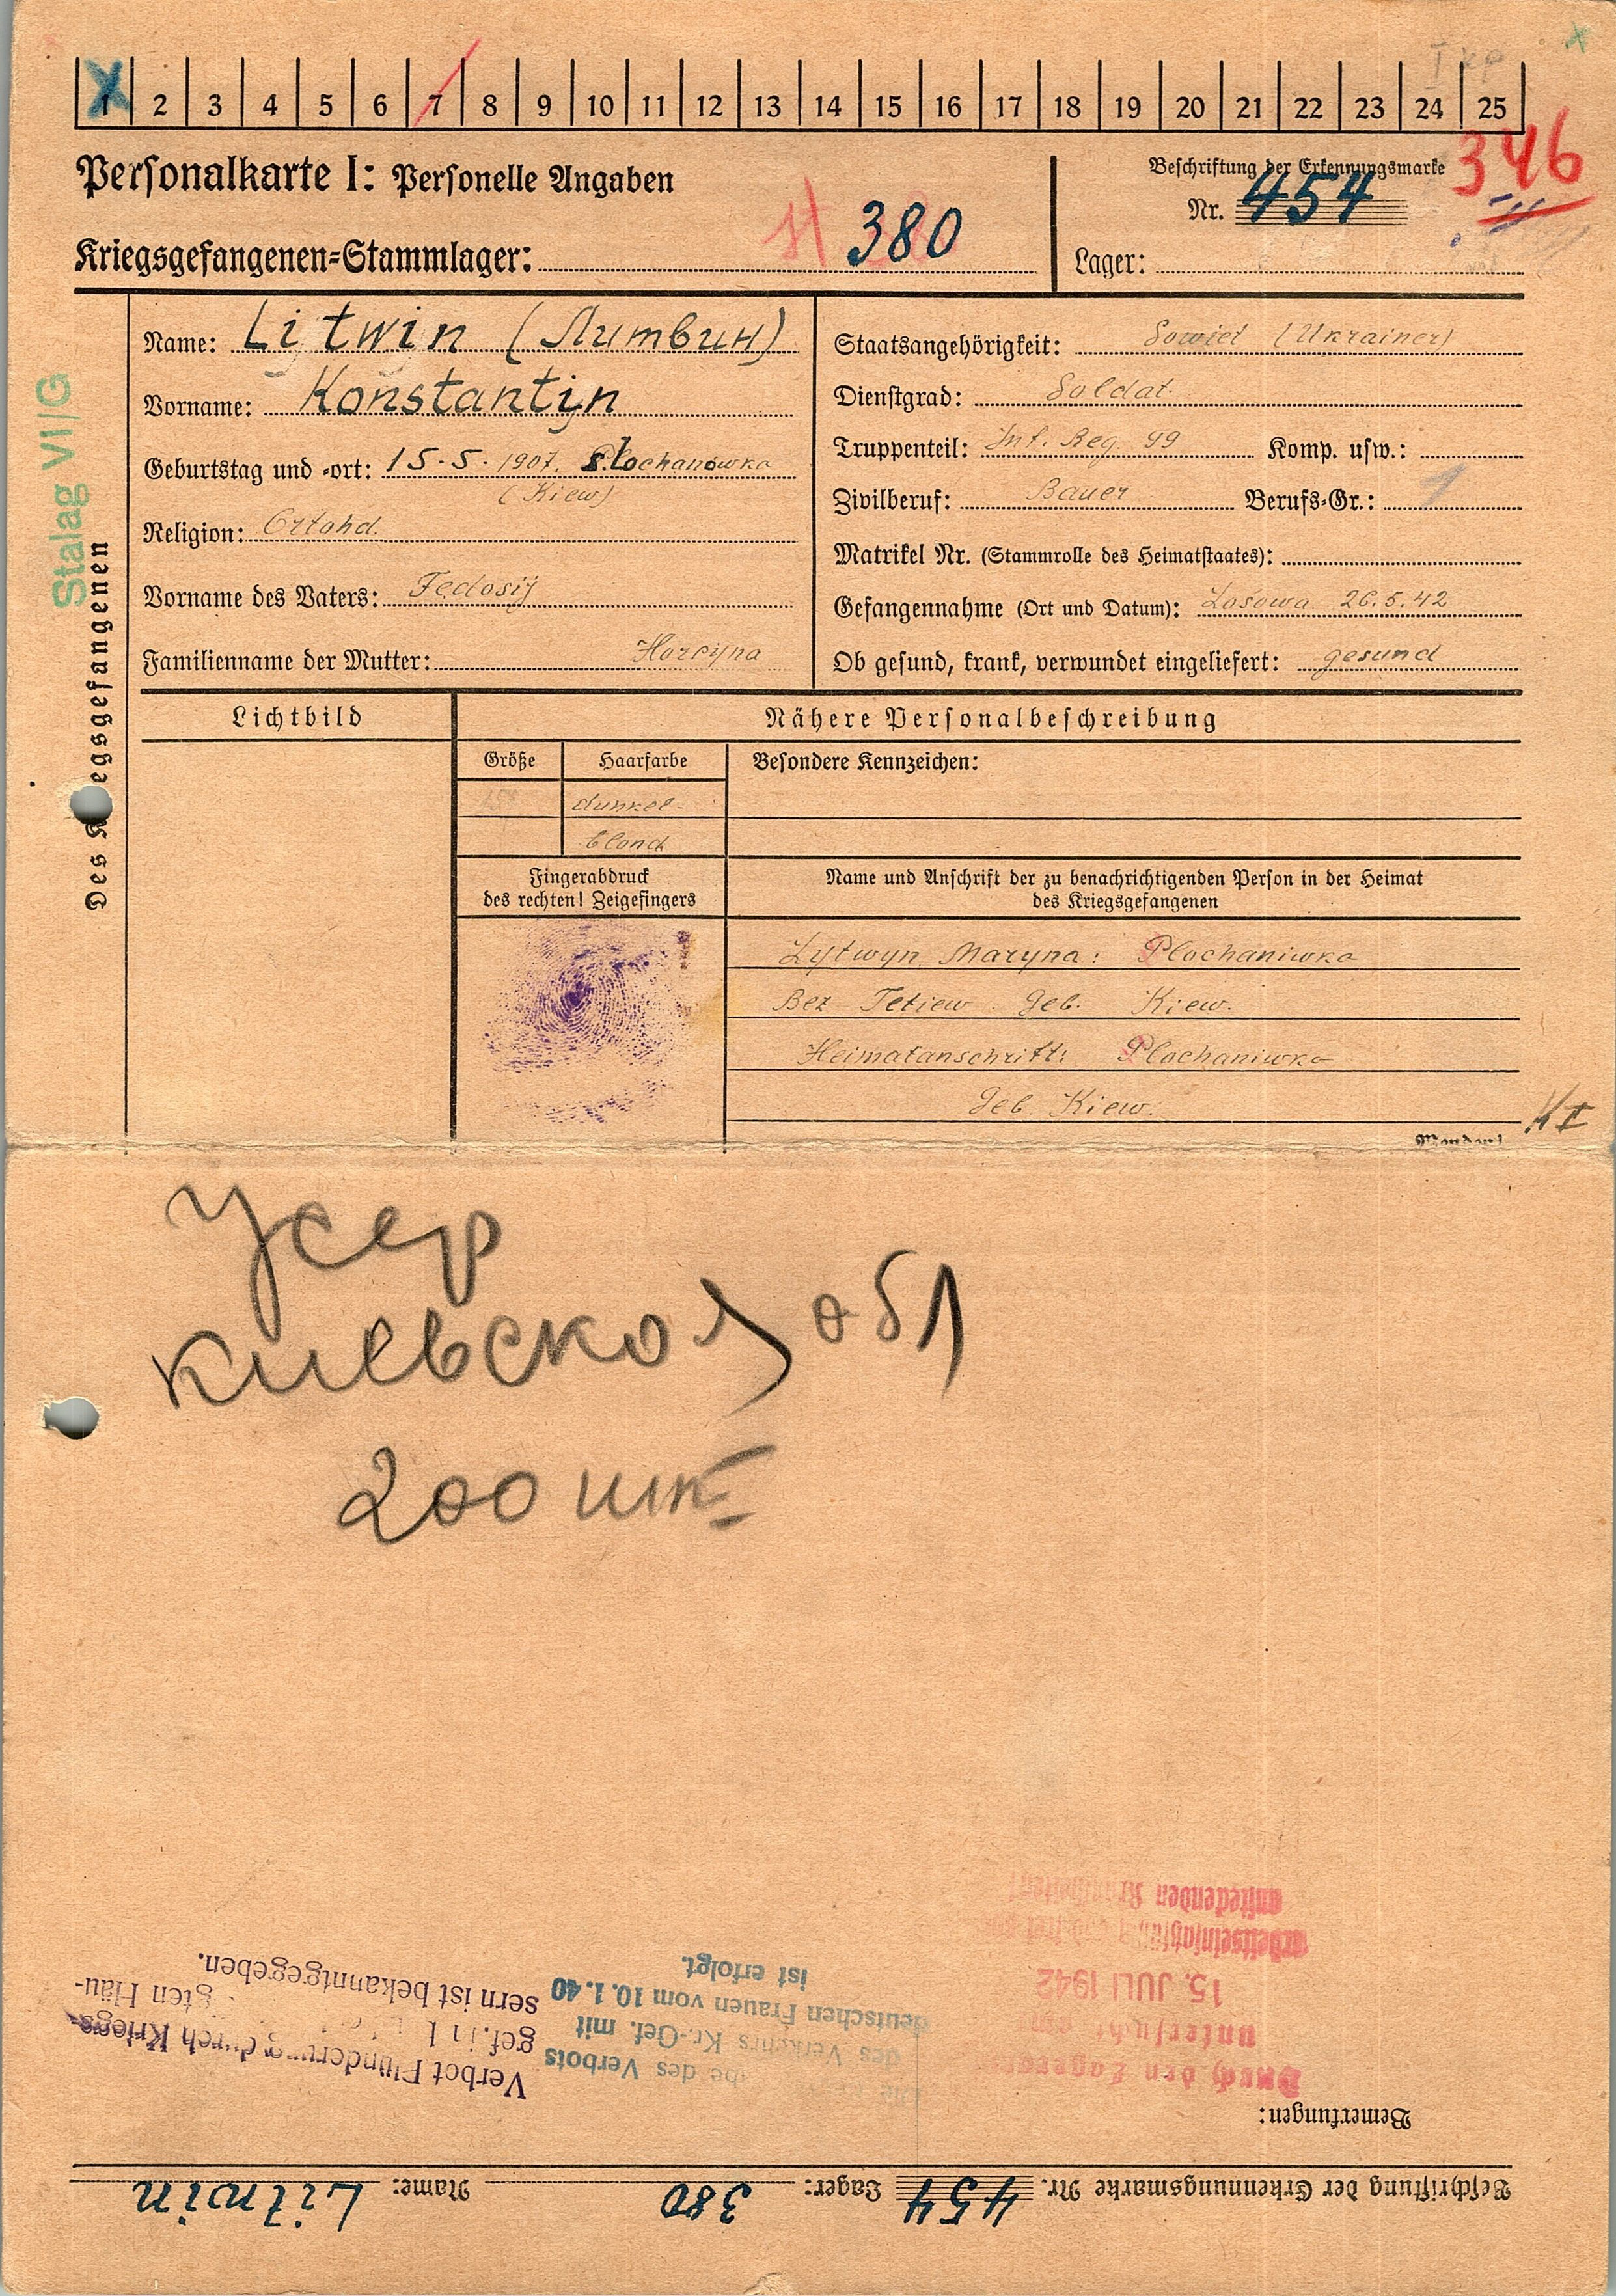 1 2 3 4 5 6 7 8 9 10 11 12 13 14 15 16 17 18 19 20 21 22 23 24 25
Personalkarte I: Personelle Angaben
Kriegsgefangenen-Stammlager: 380
Beschriftung der Erkennungsmarke
346
Nr. 454
Lager:
Stalag VI/G
Des Kriegsgefangenen
Name: Litwin (Литвин)
Vorname: Konstantijn
Geburtstag und -ort: 15.5.1907. Plochanowka
(Kiew)
Religion: Ortohd.
Vorname des Vaters: Fedosij
Familienname der Mutter: Horcyna
Staatsangehörigkeit: Sowiet (Ukrainer)
Dienstgrad: Soldat.
Truppenteil: Inf. Reg. 99 Komp. usw.:
Zivilberuf: Bauer Berufs-Gr.: 1
Matrikel Nr. (Stammrolle des Heimatstaates):
Gefangennahme (Ort und Datum): Losowa 26.5.42
Ob gesund, krank, verwundet eingeliefert: gesund
Lichtbild
Nähere Personalbeschreibung
Größe Haarfarbe Besondere Kennzeichen:
dunkel-
blond
Fingerabdruck
des rechten! Zeigefingers
Name und Anschrift der zu benachrichtigenden Person in der Heimat
des Kriegsgefangenen
Lytwyn Maryna: Plochaniwka
Bez Tetiew Geb. Kiew.
Heimatanschrift: Plochaniwka
Geb. Kiew.
Усср
киевской обл
200 шт
Beschriftung der Erkennungsmarke Nr. 454 Lager: 380 Name: Litwin
Bemerkungen:
Durch den Lager
untersucht am
15. JULI 1942
arbeitseinsatzfähig
ansteckenden Krankheiten
des Verbots
des Verkehrs Kr.-Gef. mit
deutschen Frauen vom 10.1.40
ist erfolgt.
Verbot Plünderung durch Kriegs-
gef. in
gten Häu-
sern ist bekanntgegeben.